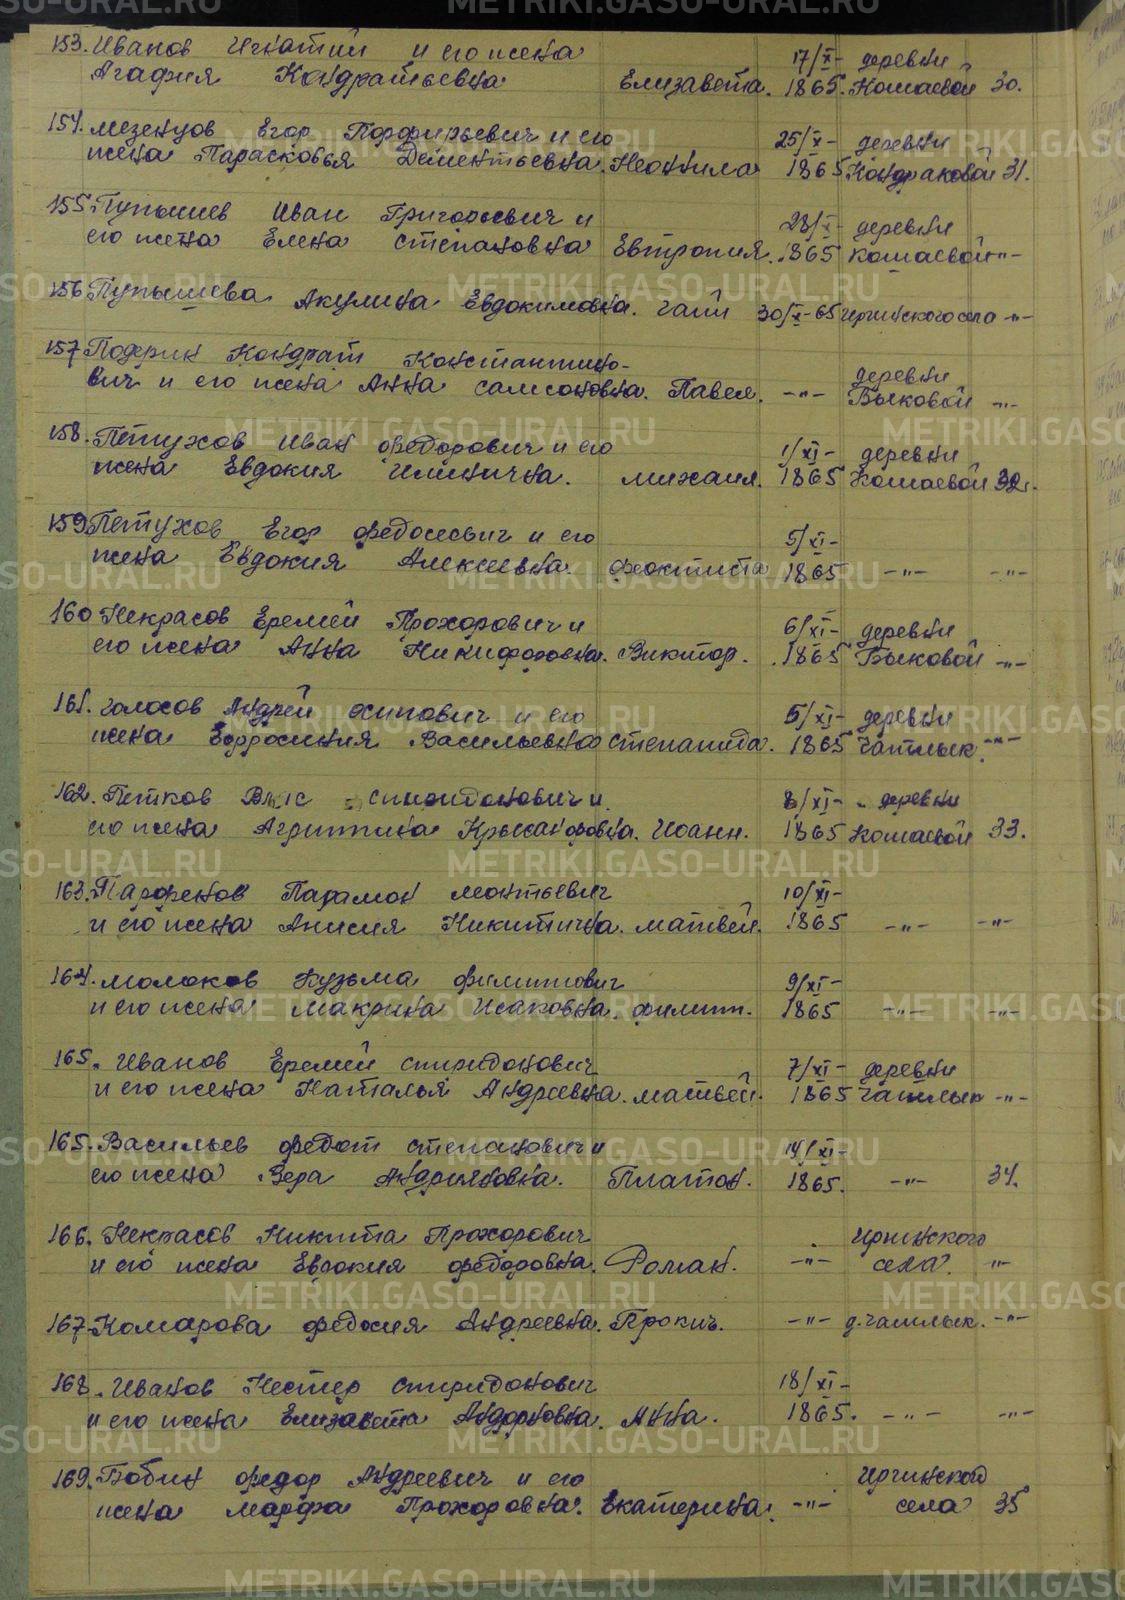 153. Иванов Игнатий и его жена 17/X- деревни
Агафия Кондратьевна Елизавета. 1865. Кошаевой 30.
154. Мезенцов Егор Порфирьевич и его 25/X- деревни
жена Парасковья Дементьевна. Неонила 1865 Кондраковой 31.
155. Пупышев Иван Григорьевич и 28/X- деревни
его жена Елена Степановна Евтропия. 1865 Кошаевой -"-
156 Пупышева Акулина Евдокимовна. 30/X-65 Иргинского села -"-
157 Подерин Кондрат Константино- деревни
вич и его жена Анна Самсоновна. Павел. -"- Быковой -"-
158. Петухов Иван Федорович и его 1/XI- деревни
жена Евдокия Ильинична. Михаил. 1865 Кошаевой 32.
159 Петухов Егор Федосеевич и его 5/XI-
жена Евдокия Алексеевна. Феоктиста 1865 -"- -"-
160 Некрасов Еремей Прохорович и 6/XI- деревни
его жена Анна Никифоровна. Виктор. 1865 Быковой -"-
161. Голосов Андрей Осипович и его 5/XI- деревни
жена Ефросиния Васильевна Степанида. 1865 Чатлык. -"-
162. Петков Влас Спиридонович и 8/XI- деревни
его жена Агриппина Крысанфовна. Иоанн. 1865 Кошаевой 33.
163. Парфенов Парамон Монтьевич 10/XI-
и его жена Анисия Никитична. Матвей. 1865 -"- -"-
164. Молоков Кузьма Филиппович 9/XI-
и его жена Макрина Исаковна. Филипп. 1865 -"- -"-
165. Иванов Еремей Спиридонович 7/XI- деревни
и его жена Наталья Андреевна. Матвей. 1865 Чатлык -"-
165. Васильев Федот Степанович и 14/XI-
его жена Вера Андрияновна. Платон. 1865. -"- 34.
166. Некрасов Никита Прохорович Иргинского
и его жена Евдокия Федоровна. Роман. -"- села. -"-
167. Комарова Федосия Андреевна. Прокич. -"- д. Чатлык. -"-
168. Иванов Нестер Спиридонович 18/XI-
и его жена Елизавета Анна. 1865. -"- -"-
169. Бобин Федор Андреевич и его Иргинского
жена Марфа Прохоровна. Екатерина. -"- села 35
METRIKI.GASO-URAL.RU